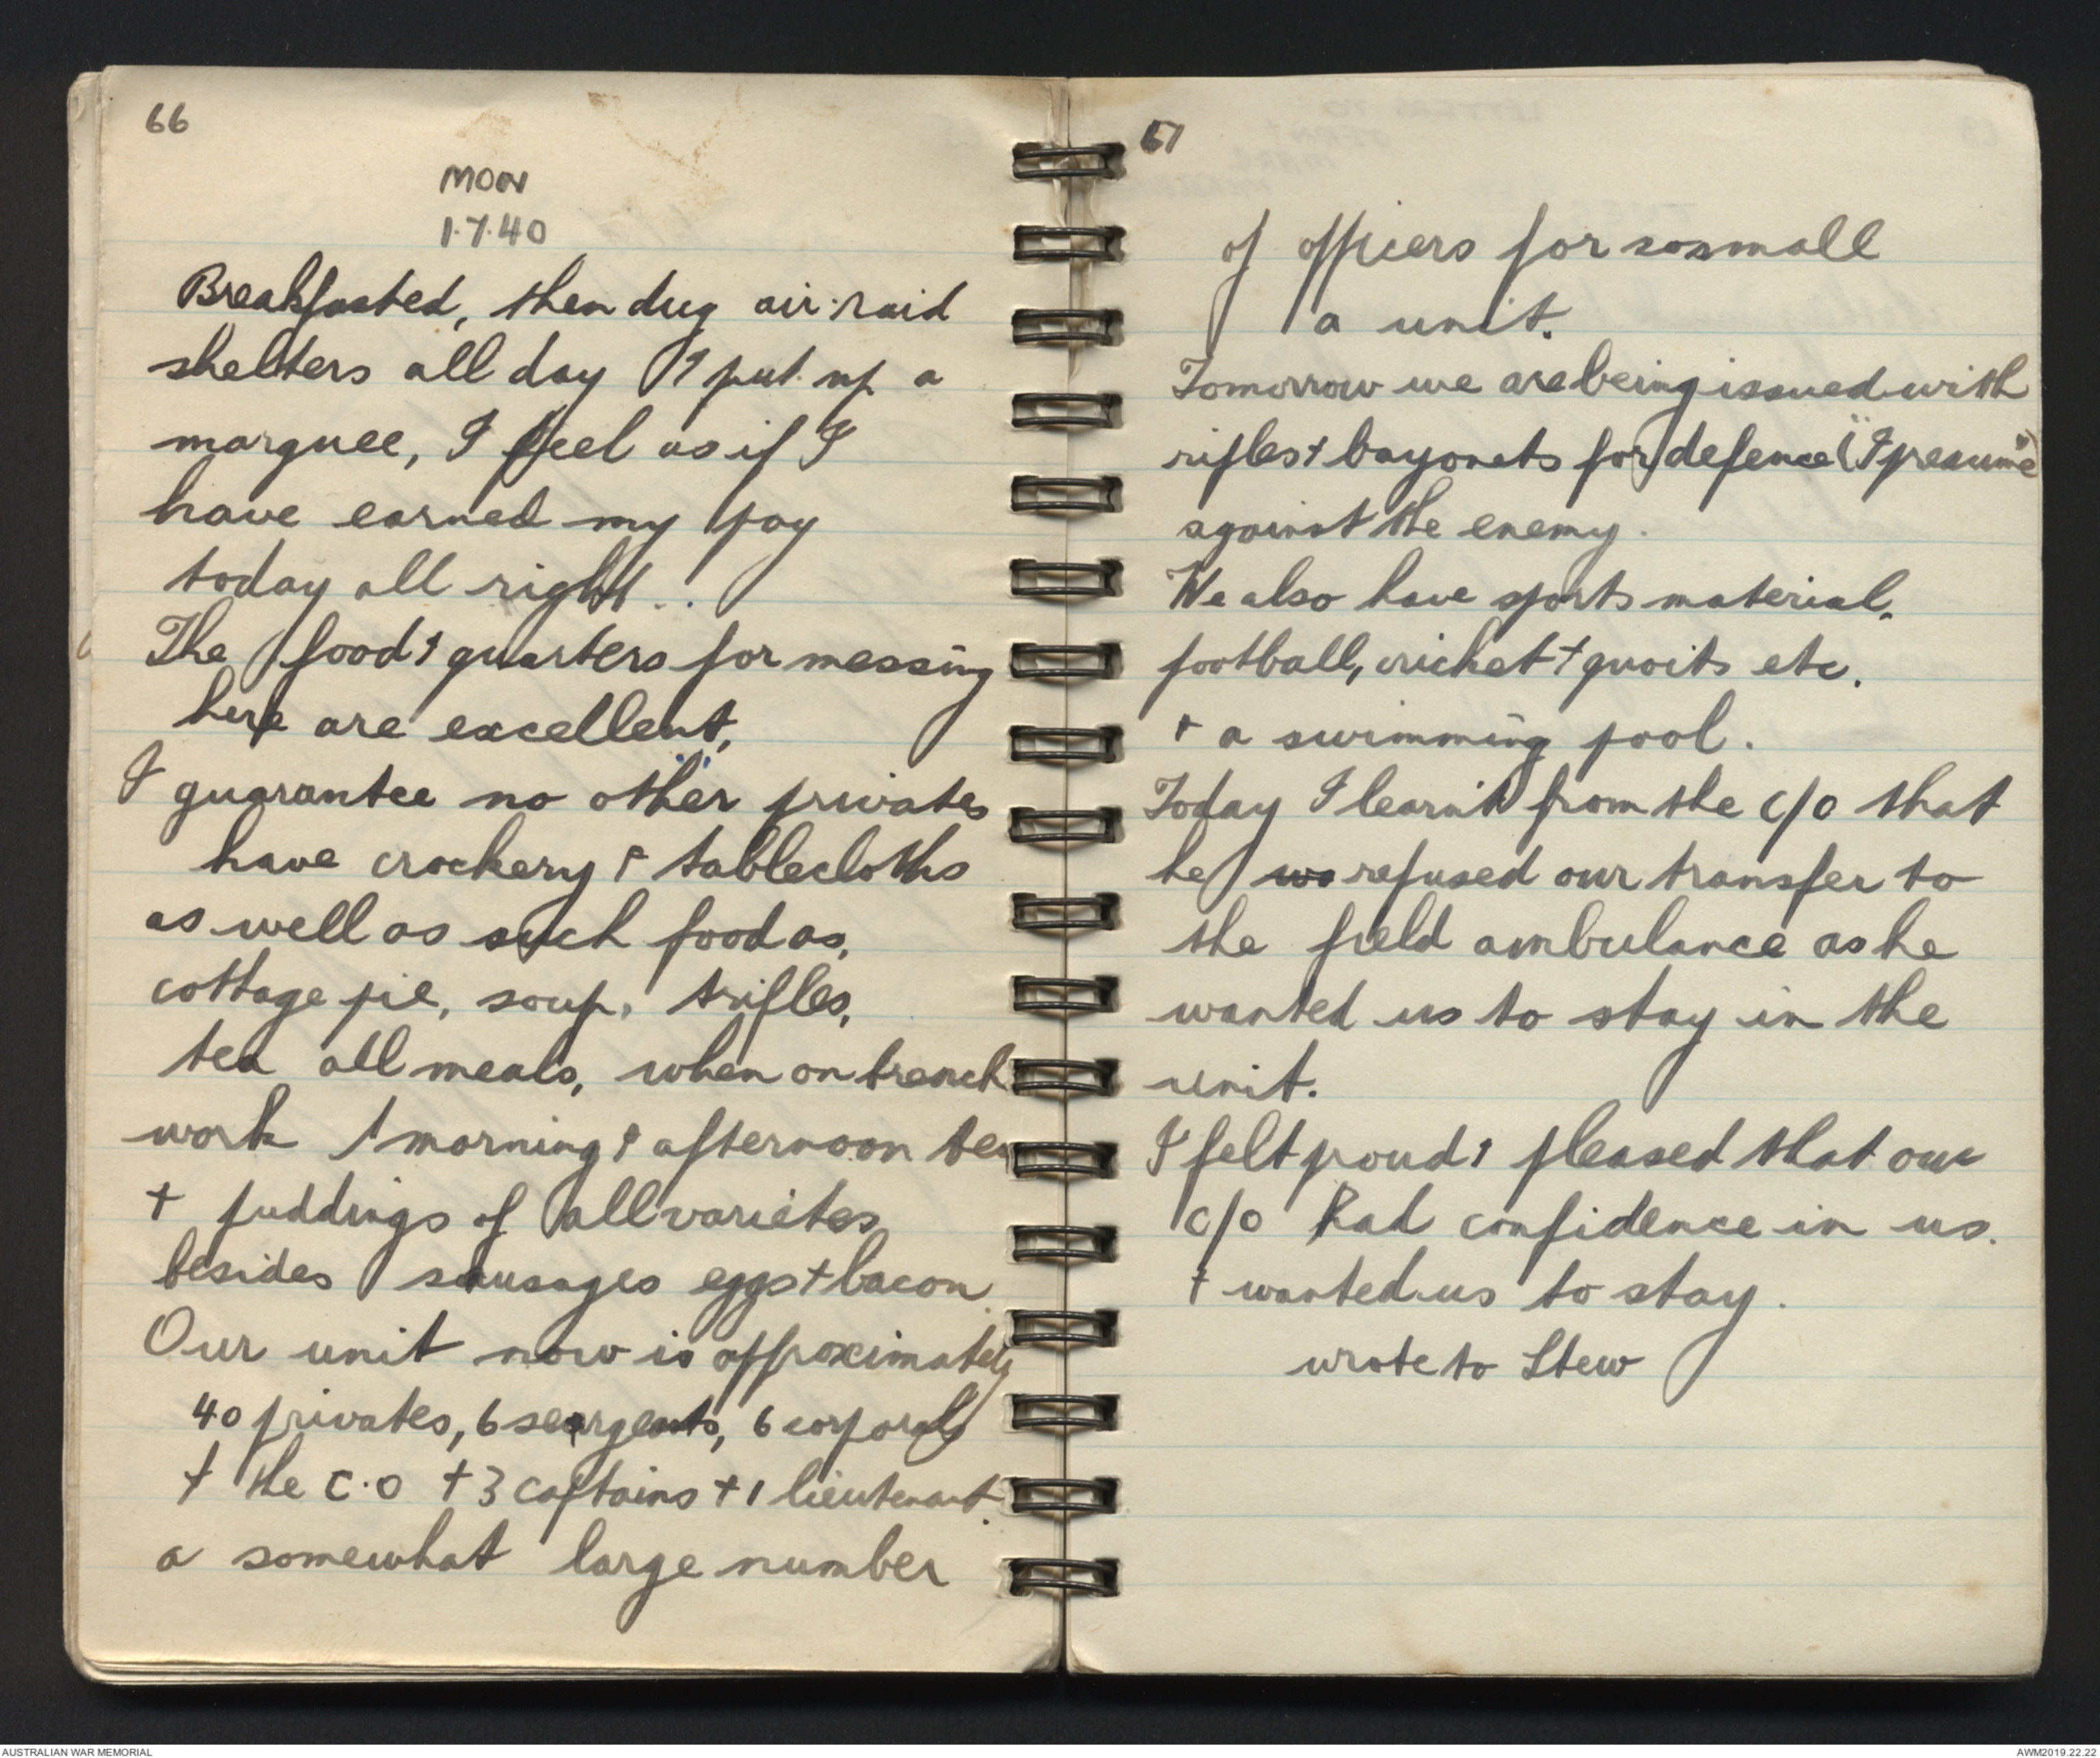 66
MON
1.7.40
Breakfasted, then dug air-raid
shelters all day & put up a
marquee, I feel as if I
have earned my pay
today all right..
The food & quarters for messing
here are excellent,
I guarantee no other privates
have crockery & tablecloths
as well as such food as,
cottage pie, soup, trifles,
tea all meals, when on trench
work, morning & afternoon tea
+ puddings of all varietes
besides sausages eggs + bacon.
Our unit now is approximately
40 privates, 6 seargents, 6 corporals
+ the C.O + 3 captains + 1 lieutenant.
a somewhat large number
67
of officers for so small
a unit.
Tomorrow we are being issued with
rifles + bayonets for defence ("I presume")
against the enemy.
We also have sports material,
football, cricket + quoits etc.
+ a swimming pool.
Today I learnt from the C/O that
he refused our transfer to
the field ambulance as he
wanted us to stay in the
unit.
I felt proud & pleased that our
C/O had confidence in us.
+ wanted us to stay.
wrote to Stew
AUSTRALIAN WAR MEMORIAL
AWM2019.22.22